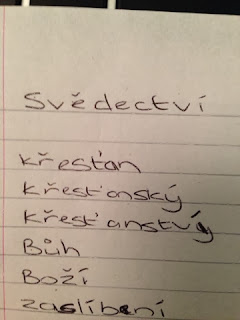 Svědectví
křesťan
křesťanský
křesťanství
Bůh
Boží
zaslíbení